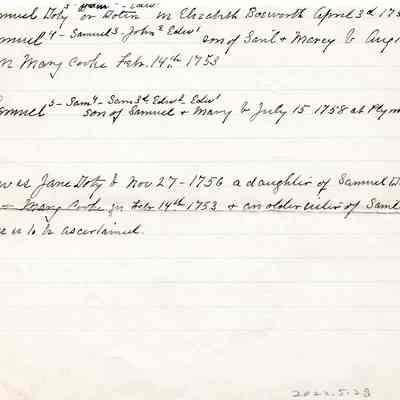 muel Doty or Doten m Elizabeth Bosworth April 3d 175
amuel 4 - Samuel 3 - John 2 Edw 1 son of Saml & Marcy b Aug
m Mary Cooke Feb. 14th 1753
amuel 5 - Sam 4 - Sam 3d Edw 2 Edw 1
son of Samuel & Mary b July 15 1758 at Plym
is Jane Doty b Nov 27 - 1756 a daughter of Samuel D
Mary Cooke m Feb 14th 1753 & an older sister of Saml
is to be ascertained.
2022.5.28